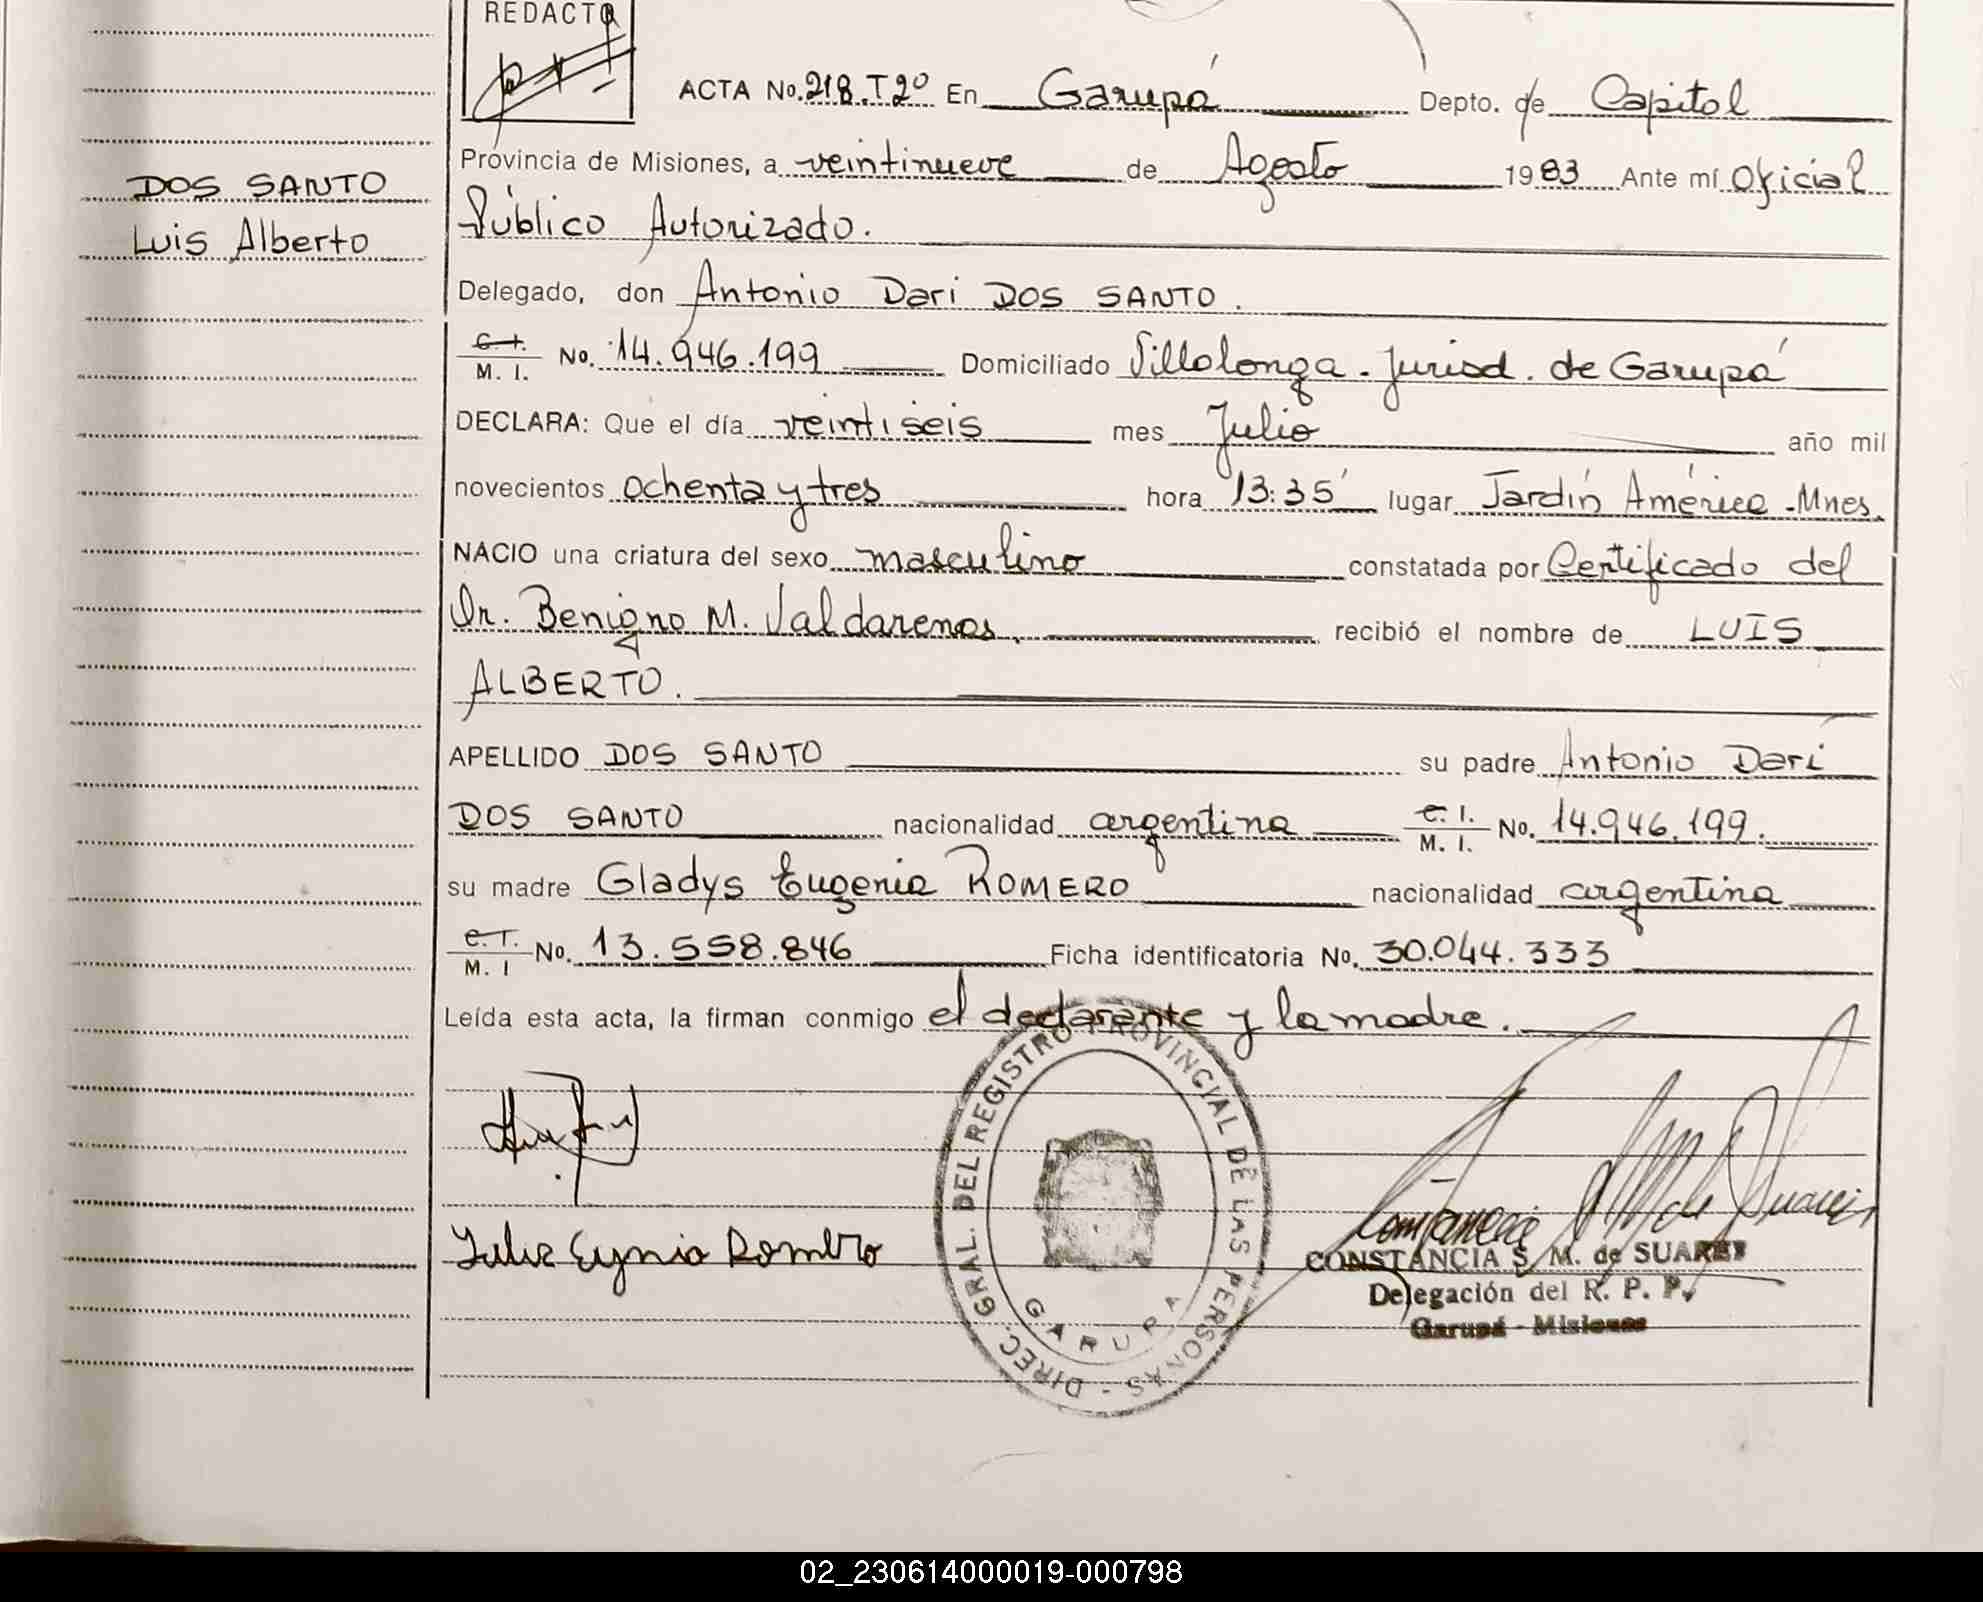 REDACTO
ACTA No. 218. T2º En Garupá Depto. de Capital
DOS SANTO
Luis Alberto
Provincia de Misiones, a veintinueve de Agosto 1983 Ante mí Oficial
Público Autorizado.
Delegado, don Antonio Dari DOS SANTO.
C. I. M. I. No. 14.946.199 Domiciliado Villalonga - Jurisd. de Garupá
DECLARA: Que el día veintiseis mes Julio año mil
novecientos ochenta y tres hora 13:35' lugar Jardín América - Mnes.
NACIO una criatura del sexo masculino constatada por Certificado del
Dr. Benigno M. Valdarenas. recibió el nombre de LUIS
ALBERTO.
APELLIDO DOS SANTO su padre Antonio Dari
DOS SANTO nacionalidad argentina C. I. M. I. No. 14.946.199.
su madre Gladys Eugenia ROMERO nacionalidad argentina
C. I. M. I No. 13.558.846 Ficha identificatoria No. 30.044.333
Leída esta acta, la firman conmigo el declarante y la madre.
DIREC. GRAL. DEL REGISTRO PROVINCIAL DE LAS PERSONAS -
GARUPA
CONSTANCIA S. M. de SUAREZ
Delegación del R. P. P.
Garupá - Misiones
02_230614000019-000798